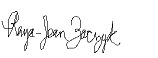 Raya-Jean Zaczyk